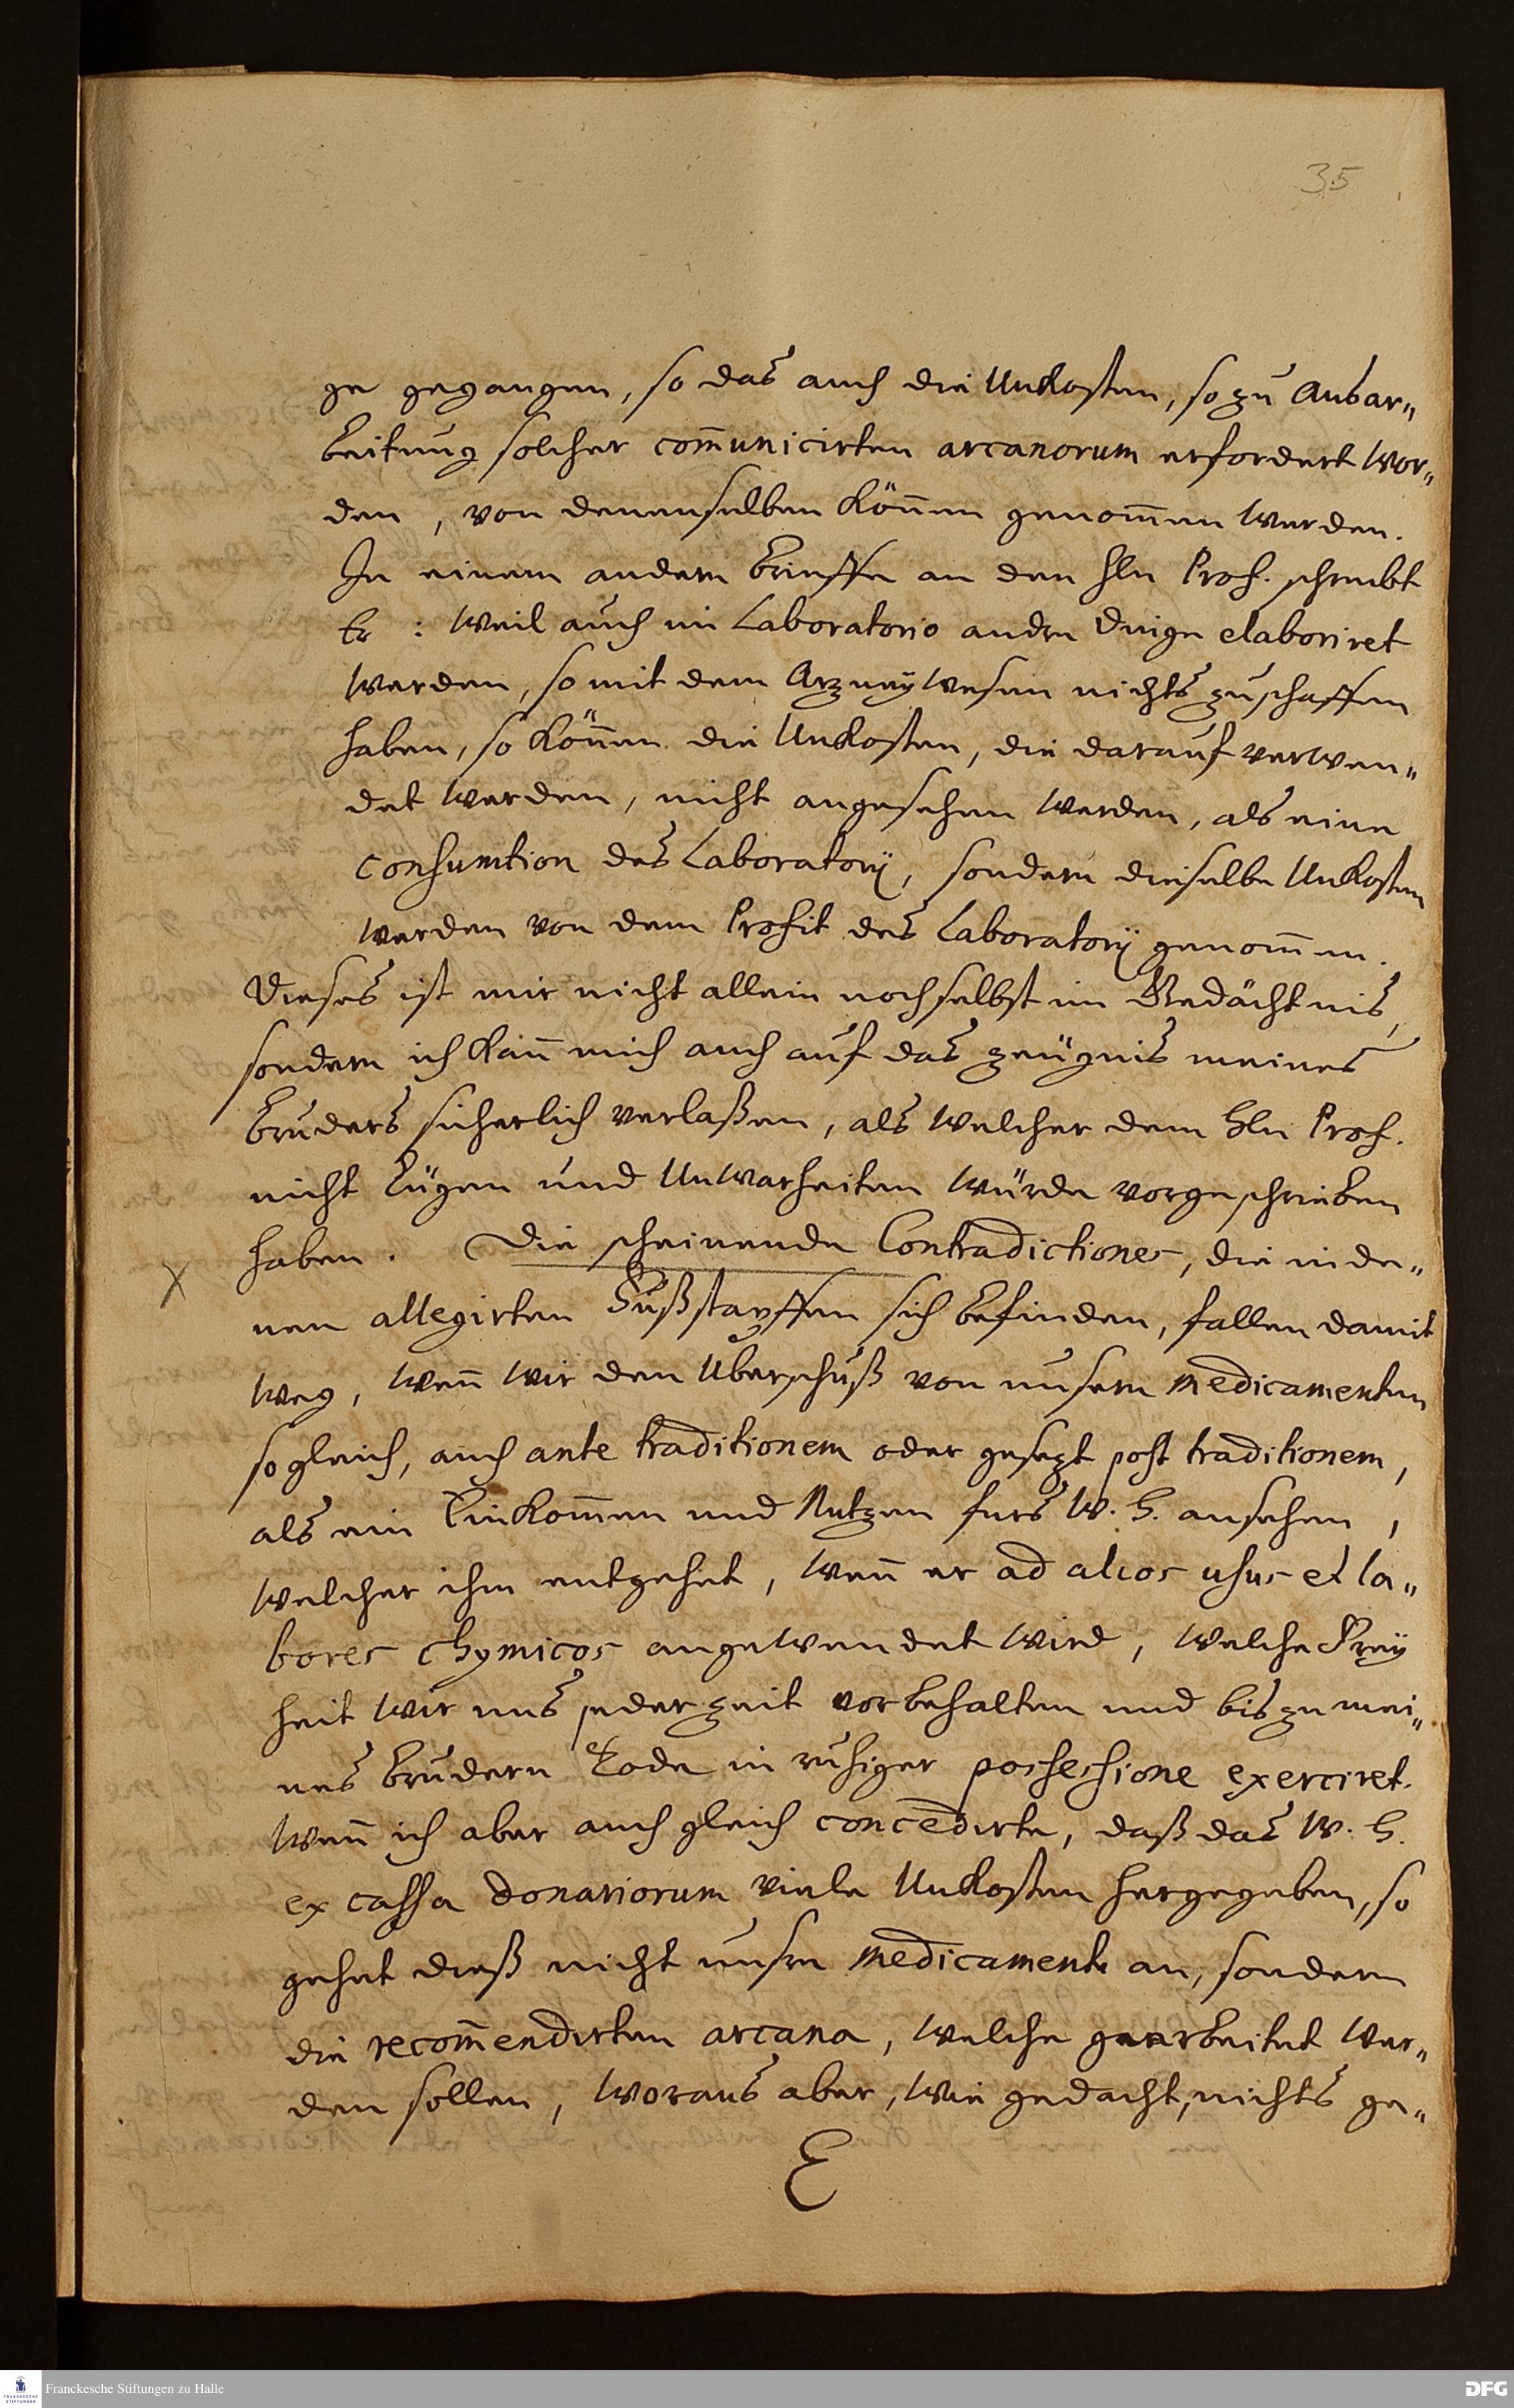 35
ge gegangen, so das auch die Unkosten, so zu Ausar„
beitung solcher com̄unicirten arcanorum erfordert wor„
den, von denenselben kön̄en genom̄en werden.
In einem andern brieffe an den Hln Prof. schreibt
Er: Weil auch im Laboratorio andre Dinge elaboriret
werden, so mit dem Arzneywesen nichts zuschaffen
haben, so kön̄en die Unkosten, die darauf verwen„
det werden, nicht angesehen werden, als eine
consumtion des Laboratorij, sondern dieselbe Unkosten
werden von dem Profit des Laboratorij genom̄en.
Dieses ist mir nicht allein noch selbst im Gedächtnis,
sondern ich kan̄ mich auch auf das zeügnis meines
bruders sicherlich verlaßen, als welcher dem Hln Prof.
nicht Lügen und Unwarheiten würde vorgeschrieben
haben. Die scheinende Contradictiones, die in de„
X
nen allegirten Fußstapffen sich befinden, fallen damit
weg, wen̄ wir den Uberschuß von unsern medicamenten
sogleich, auch ante traditionem oder gesezt post traditionem,
als ein Einkom̄en und Nutzen furs W. H. ansehen,
welcher ihm entgehet, wen̄ er ad alios usus et la„
bores chymicos angewendet wird, welche Frey
heit wir uns jederzeit vorbehalten und bis zu mei„
nes brudern Tode in ruhiger possessione exerciret.
Wen̄ ich aber auch gleich concedirte, daß das W. H.
ex cassa donariorum viele Unkosten hergegeben, so
gehet dieß nicht unsre medicamente an, sondern
die recom̄endirten arcana, welche gearbeitet wer„
den sollen, woraus aber, wie gedacht, nichts ge„
E
Franckesche Stiftungen zu Halle
DFG